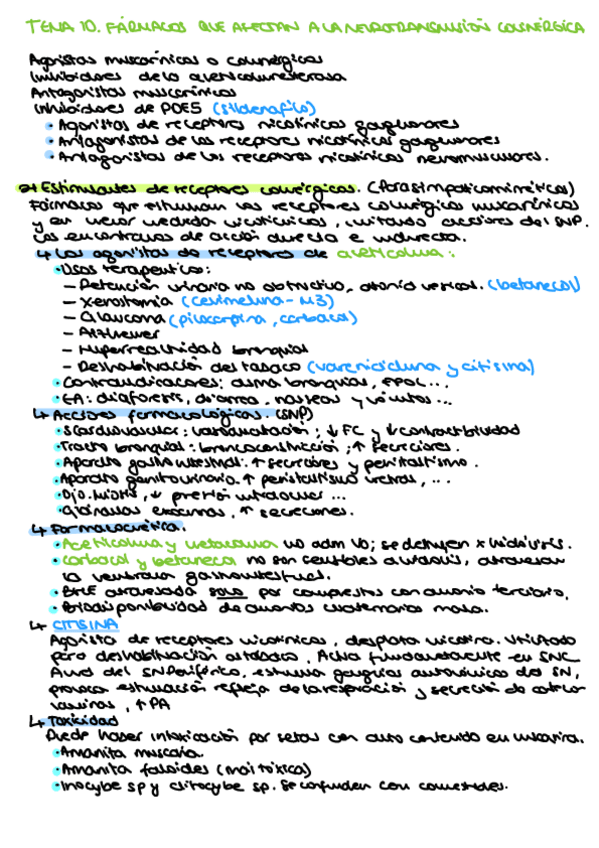 TEMA 10. FÁRMACOS QUE AFECTAN A LA NEUROTRANSMISIÓN COLINÉRGICA
Agonistas muscarínicos o colinérgicos
Inhibidores de la acetilcolinesterasa
Antagonistas muscarínicos
Inhibidores de PDE5 (sildenafilo)
• Agonistas de receptores nicotínicos ganglionares
• Antagonistas de los receptores nicotínicos ganglionares
• Antagonistas de los receptores nicotínicos neuromusculares.
Estimulantes de receptores colinérgicos. (Parasimpaticomiméticos)
Fármacos que estimulan los receptores colinérgicos muscarínicos
y en menor medida nicotínicos, imitando acciones del SNP.
Los encontramos de acción directa e indirecta.
↳ Los agonistas de receptores de acetilcolina:
• Usos terapeuticos:
– Retención urinaria no obstructivo, atonía vesical. (betanecol)
– Xerostomia (cevimelina - M3)
– Glaucoma (pilocarpina, carbacol)
– Alzheimer
– Hiperreactividad bronquial
– Deshabituación del tabaco (vareniclina y citisina)
• Contraindicaciones: asma bronquial, EPOC...
• EA: diaforesis, diarrea, náuseas y vómitos...
↳ Acciones farmacológicas. (SNP)
• S cardiovascular: vasodilatación; ↓ FC y ↓ contractibilidad
• Tracto bronquial: broncoconstricción; ↑ secreciones.
• Aparato gastrointestinal: ↑ secreciones y peristaltismo.
• Aparato genitourinario. ↑ peristaltismo ...
• Ojo. Miosis, ↓ presión intraocular ...
• Glándulas exocrinas, ↑ secreciones.
↳ Farmacocinética.
• Acetilcolina y metacolina no adm VO; se destruyen x hidrólisis.
• Carbacol y betanecol no son sensibles a hidrólisis, atraviesan
la ventana gastrointestinal.
• BHE atravesada solo por compuestos con amonio terciario.
• Biodisponibilidad de amonios cuaternarios mala.
↳ CITISINA
Agonista de receptores nicotínicos, desplaza nicotina. Utilizado
para deshabituación al tabaco. Actúa fundamentalmente en SNC
A nivel del SN Periférico, estimula ganglios autonómicos del SN,
provoca estimulación refleja de la respiración y secreción de cateco-
laminas, ↑ PA
↳ Toxicidad
Puede haber intoxicación por setas con alto contenido en muscarina.
• Amanita muscaria.
• Amanita faloides (mal tóxica)
• Inocybe sp y clitocybe sp. Se confunden con comestibles.